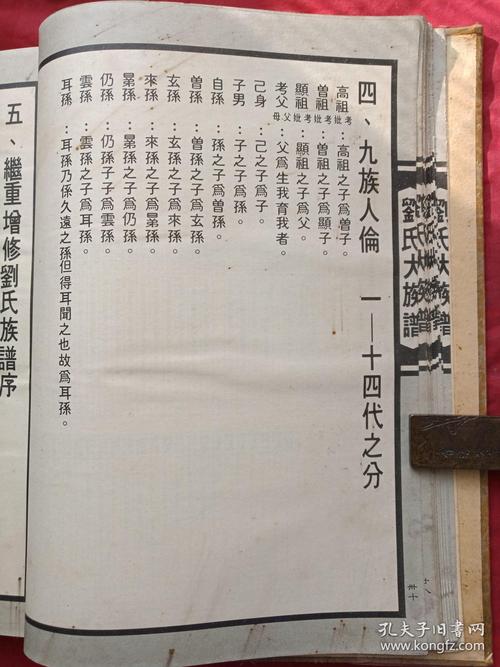 劉氏大族譜
劉氏大族譜
劉氏大族譜
四、九族人倫 一—十四代之分
高祖考妣：高祖之子爲曽子。
曽祖考妣：曽祖之子爲顯子。
顯祖考妣：顯祖之子爲父。
考父父母：父爲生我育我者。
己身：己之子爲子。
子男：子之子爲孫。
自孫：孫之子爲曽孫。
曽孫：曽孫之子爲玄孫。
玄孫：玄孫之子爲來孫。
來孫：來孫之子爲晜孫。
晜孫：晜孫之子爲仍孫。
仍孫：仍孫子子爲雲孫。
雲孫：雲孫之子爲耳孫。
耳孫：耳孫乃係久遠之孫但得耳聞之也故爲耳孫。
五、繼重增修劉氏族譜序
孔夫子旧书网
www.kongfz.com